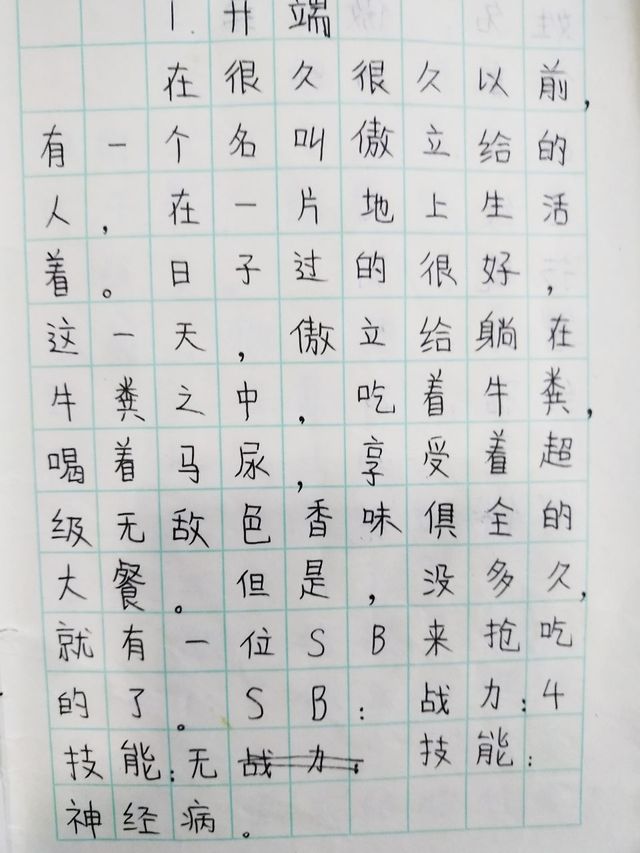 1.开端
在很久很久以前，
有一个名叫傲立给的
人，在一片地上生活
着。日子过的很好，
这一天，傲立给躺在
牛粪之中，吃着牛粪，
喝着马尿，享受着超
级无敌色香味俱全的
大餐。但是，没多久，
就有一位SB来抢吃
的了。SB：战力：4
技能：无战力：技能：
神经病。